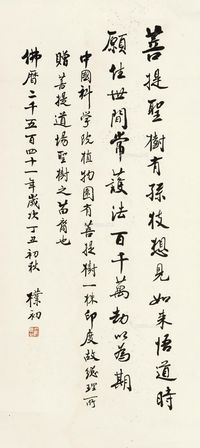 菩提聖樹有孫枝想見如来悟道時
願住世間常護法百千萬劫以為期
中國科学院植物园有菩提樹一株印度故總理所
贈菩提道場聖樹之苗裔也
佛曆二千五百四十一年歲次丁丑初秋 樸初